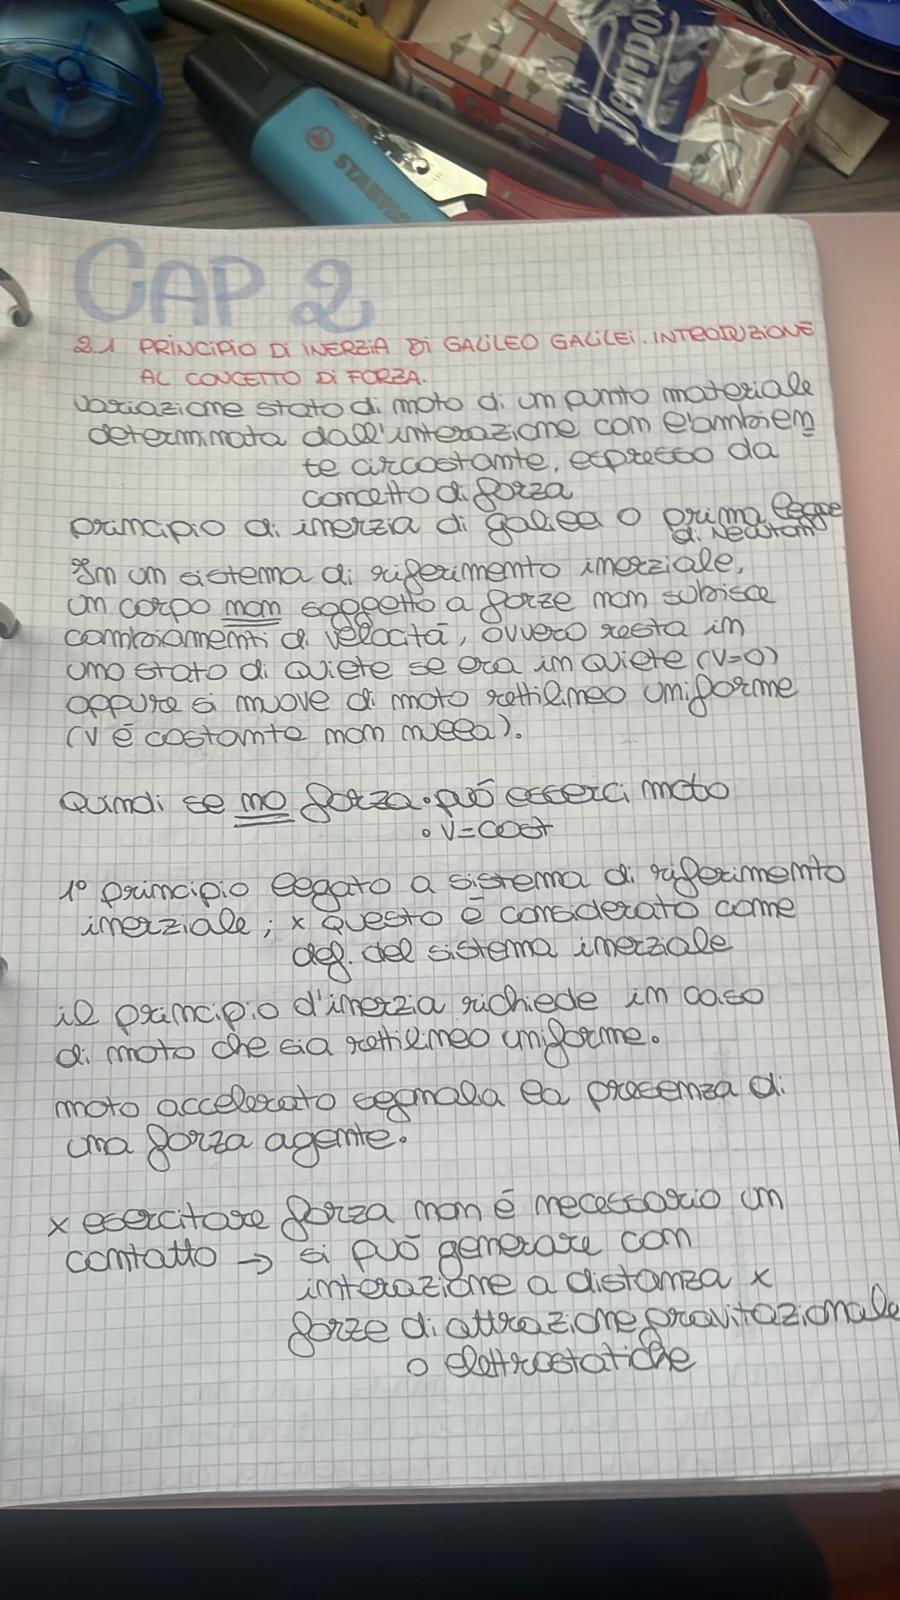 Tempo
STABILO
CAP 2
2.1 PRINCIPIO DI INERZIA DI GALILEO GALILEI. INTRODUZIONE
AL CONCETTO DI FORZA.
variazione stato di moto di un punto materiale
determinata dall'interazione con l'ambien
te circostante, espresso da
concetto di forza
principio di inerzia di galilea o prima legge
di Newton
In un sistema di riferimento inerziale,
un corpo non soggetto a forze non subisce
cambiamenti di velocità, ovvero resta in
uno stato di quiete se era in quiete (v=0)
oppure si muove di moto rettilineo uniforme
(v è costante non nulla).
Quindi se no forza • può esserci moto
• v=cost
1° principio legato a sistema di riferimento
inerziale; x questo è considerato come
def. del sistema inerziale
il principio d'inerzia richiede in caso
di moto che sia rettilineo uniforme.
moto accelerato segnala la presenza di
una forza agente.
x esercitare forza non è necessario un
contatto → si può generare con
interazione a distanza x
forze di attrazione gravitazionale
o elettrostatiche